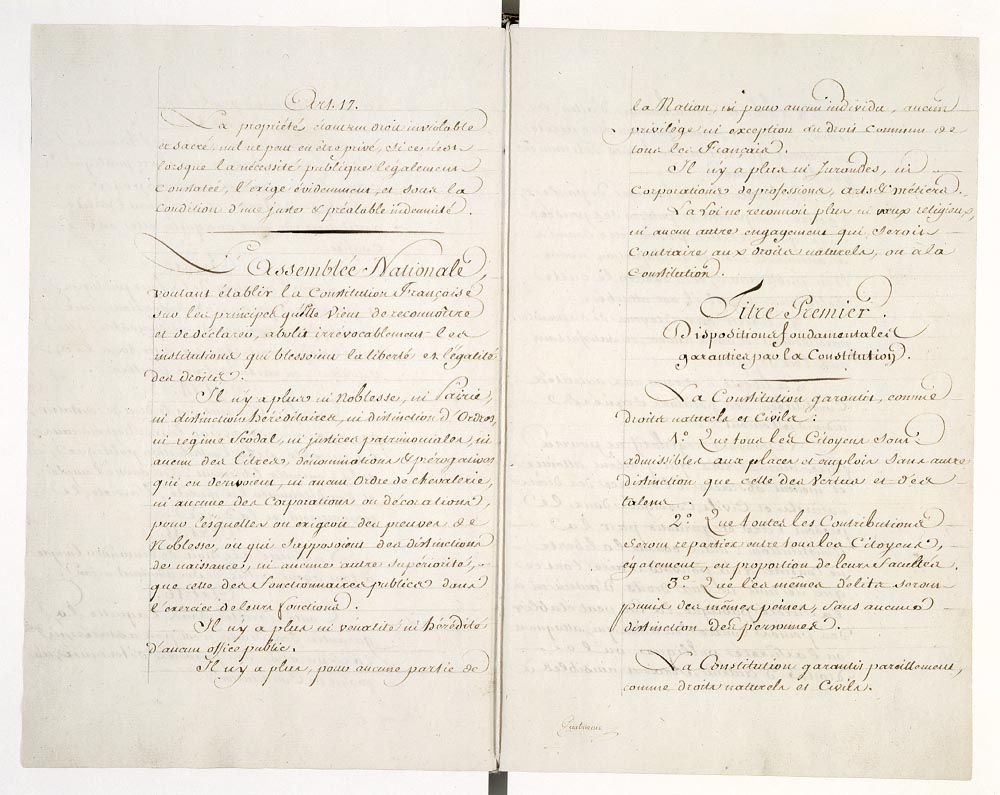 Art. 17.
La propriété étant un droit inviolable
et sacré, nul ne peut en être privé, si ce n'est
lorsque la nécessité publique légalement
constatée, l'exige évidemment, et sous la
condition d'une juste & préalable indemnité.
L'Assemblée Nationale,
voulant établir la Constitution Française
sur les principes qu'elle vient de reconnoître
et de déclarer, abolit irrévocablement les
institutions qui blessoient la liberté et l'égalité
des droits.
Il n'y a plus ni Noblesse, ni Pairie,
ni distinctions héréditaires, ni distinction d'Ordres,
ni régime féodal, ni justices patrimoniales, ni
aucun des titres, dénominations & prérogatives
qui en dérivoient, ni aucun Ordre de chevalerie,
ni aucune des Corporations ou décorations,
pour lesquelles on exigeoit des preuves de
Noblesse, ou qui supposoient des distinctions
de naissance, ni aucune autre supériorité,
que celle des fonctionnaires publics dans
l'exercice de leurs fonctions.
Il n'y a plus ni vénalité ni hérédité
d'aucun office public.
Il n'y a plus, pour aucune partie de
la Nation, ni pour aucun individu, aucun
privilège ni exception au droit commun de
tous les Français.
Il n'y a plus ni Jurandes, ni
corporations de professions, arts & métiers.
La Loi ne reconnoit plus ni vœux religieux,
ni aucun autre engagement qui seroit
contraire aux droits naturels, ou à la
Constitution.
Titre Premier.
Dispositions fondamentales
garanties par la Constitution.
La Constitution garantit, comme
droits naturels et Civils :
1.° Que tous les Citoyens sont
admissibles aux places et emplois sans autre
distinction que celle des vertus et des
talens.
2.° Que toutes les Contributions
seront réparties entre tous les Citoyens,
également, en proportion de leurs facultés.
3.° Que les mêmes délits seront
punis des mêmes peines, sans aucune
distinction des personnes.
La Constitution garantit pareillement,
comme droits naturels et Civils.